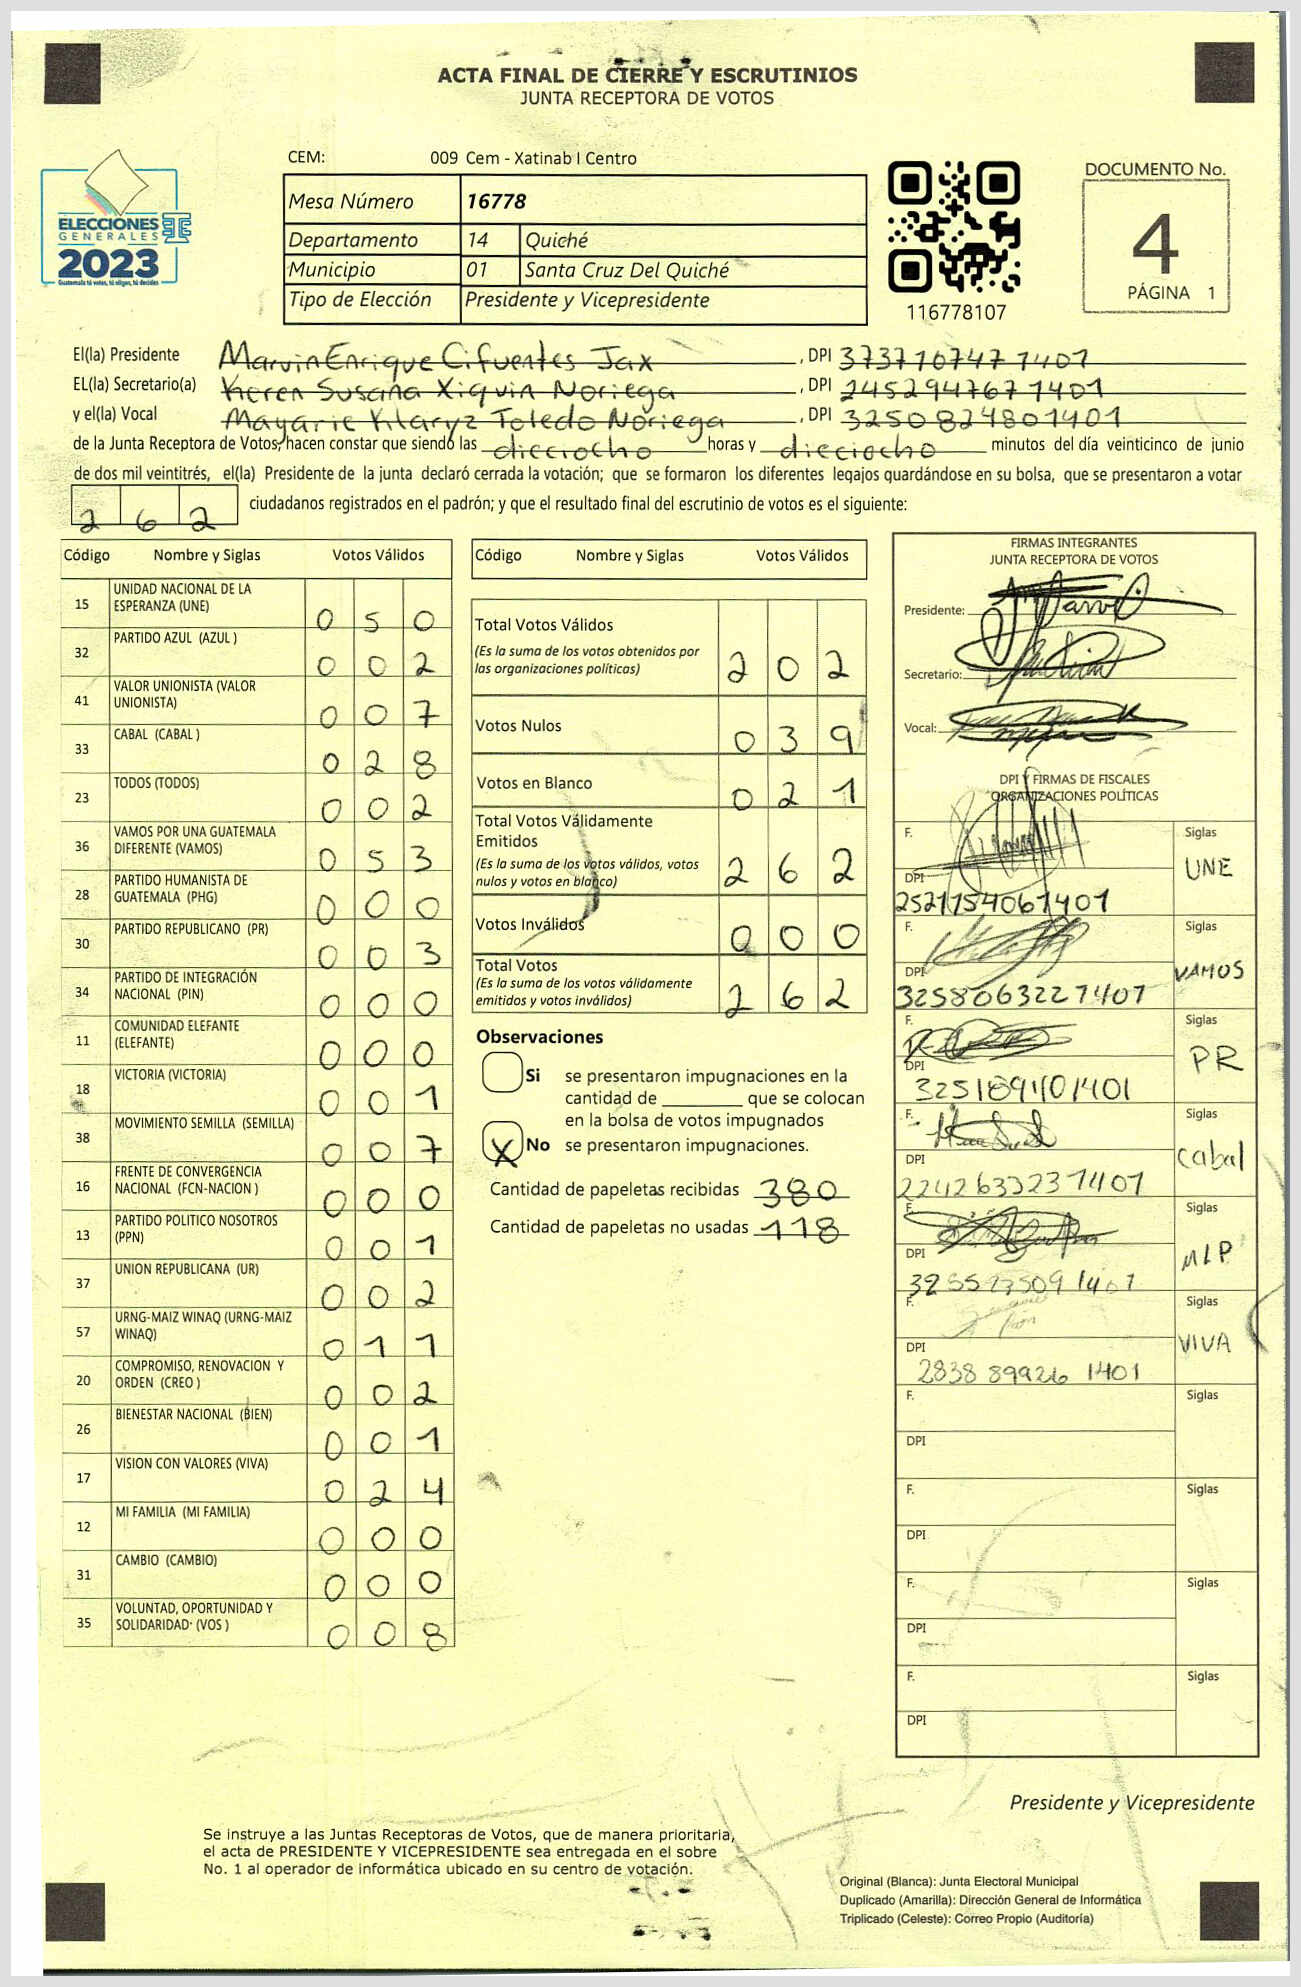 ACTA FINAL DE CIERRE Y ESCRUTINIOS
JUNTA RECEPTORA DE VOTOS
CEM: 009 Cem - Xatinab I Centro
DOCUMENTO No.
4
PÁGINA 1
ELECCIONES
GENERALES
2023
Guatemala tú votas, tú eliges, tú decides
Mesa Número 16778
Departamento 14 Quiché
Municipio 01 Santa Cruz Del Quiché
Tipo de Elección Presidente y Vicepresidente
116778107
El(la) Presidente Marvin Enrique Cifuentes Jax, DPI 373710747 1401
EL(la) Secretario(a) Keren Susana Xiquin Noriega, DPI 245294767 1401
y el(la) Vocal Toledo Noriega, DPI 3250824801401
de la Junta Receptora de Votos, hacen constar que siendo las dieciocho horas y dieciocho minutos del día veinticinco de junio
de dos mil veintitrés, el(la) Presidente de la junta declaró cerrada la votación; que se formaron los diferentes legajos guardándose en su bolsa, que se presentaron a votar
262 ciudadanos registrados en el padrón; y que el resultado final del escrutinio de votos es el siguiente:
Código Nombre y Siglas Votos Válidos
15 UNIDAD NACIONAL DE LA ESPERANZA (UNE) 0 5 0
32 PARTIDO AZUL (AZUL ) 0 0 2
41 VALOR UNIONISTA (VALOR UNIONISTA) 0 0 7
33 CABAL (CABAL ) 0 2 8
23 TODOS (TODOS) 0 0 2
36 VAMOS POR UNA GUATEMALA DIFERENTE (VAMOS) 0 5 3
28 PARTIDO HUMANISTA DE GUATEMALA (PHG) 0 0 0
30 PARTIDO REPUBLICANO (PR) 0 0 3
34 PARTIDO DE INTEGRACIÓN NACIONAL (PIN) 0 0 0
11 COMUNIDAD ELEFANTE (ELEFANTE) 0 0 0
18 VICTORIA (VICTORIA) 0 0 1
38 MOVIMIENTO SEMILLA (SEMILLA) 0 0 7
16 FRENTE DE CONVERGENCIA NACIONAL (FCN-NACION ) 0 0 0
13 PARTIDO POLITICO NOSOTROS (PPN) 0 0 1
37 UNION REPUBLICANA (UR) 0 0 2
57 URNG-MAIZ WINAQ (URNG-MAIZ WINAQ) 0 1 1
20 COMPROMISO, RENOVACION Y ORDEN (CREO ) 0 0 2
26 BIENESTAR NACIONAL (BIEN) 0 0 1
17 VISION CON VALORES (VIVA) 0 2 4
12 MI FAMILIA (MI FAMILIA) 0 0 0
31 CAMBIO (CAMBIO) 0 0 0
35 VOLUNTAD, OPORTUNIDAD Y SOLIDARIDAD (VOS ) 0 0 8
Código Nombre y Siglas Votos Válidos
Total Votos Válidos 2 0 2
(Es la suma de los votos obtenidos por
las organizaciones políticas)
Votos Nulos 0 3 9
Votos en Blanco 0 2 1
Total Votos Válidamente
Emitidos 2 6 2
(Es la suma de los votos válidos, votos
nulos y votos en blanco)
Votos Inválidos 0 0 0
Total Votos 2 6 2
(Es la suma de los votos válidamente
emitidos y votos inválidos)
Observaciones
Si se presentaron impugnaciones en la
cantidad de ________ que se colocan
en la bolsa de votos impugnados
X No se presentaron impugnaciones.
Cantidad de papeletas recibidas 380
Cantidad de papeletas no usadas 118
FIRMAS INTEGRANTES
JUNTA RECEPTORA DE VOTOS
Presidente:
Secretario:
Vocal:
DPI Y FIRMAS DE FISCALES
ORGANIZACIONES POLÍTICAS
F. Siglas
UNE
DPI
2521154061401
F. Siglas
VAMOS
DPI
3258063227401
F. Siglas
PR
DPI
F. Siglas
Cabal
DPI
2242633237401
F. Siglas
MLP
DPI
F. Siglas
VIVA
DPI
2838 89926 1401
F. Siglas
DPI
F. Siglas
DPI
F. Siglas
DPI
F. Siglas
DPI
Presidente y Vicepresidente
Se instruye a las Juntas Receptoras de Votos, que de manera prioritaria,
el acta de PRESIDENTE Y VICEPRESIDENTE sea entregada en el sobre
No. 1 al operador de informática ubicado en su centro de votación.
Original (Blanca): Junta Electoral Municipal
Duplicado (Amarilla): Dirección General de Informática
Triplicado (Celeste): Correo Propio (Auditoría)